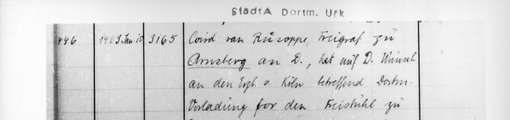 StadtA Dortm. Urk
446 1463 Jan. 10 3165 Coird van Rüsoppe, Freigraf zu
Arnsberg an D., hat auf D. Wunsch
an den Erzb. v. Köln betreffend Dortm.
Vorladung for den Freistuhl zu